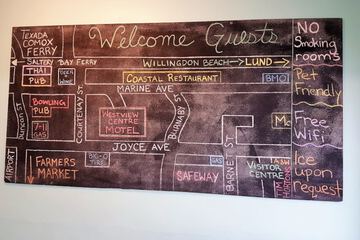 Welcome Guests
TEXADA
COMOX
FERRY
SALTERY BAY FERRY
WILLINGDON BEACH
LUND
THAI
PUB
BEER &
WINE
COASTAL RESTAURANT
BMO
MARINE AVE
BOWLING
PUB
7-11
GAS
COURTENAY ST.
WESTVIEW
CENTRE
MOTEL
BURNABY ST
JOYCE AVE
BARNET ST
AIRPORT
FARMERS
MARKET
BIG-O
TIRE
GAS
SAFEWAY
VISITOR
CENTRE
TIM
HORTONS
NO
Smoking
rooms
Pet
Friendly
Free
Wifi
Ice
upon
request